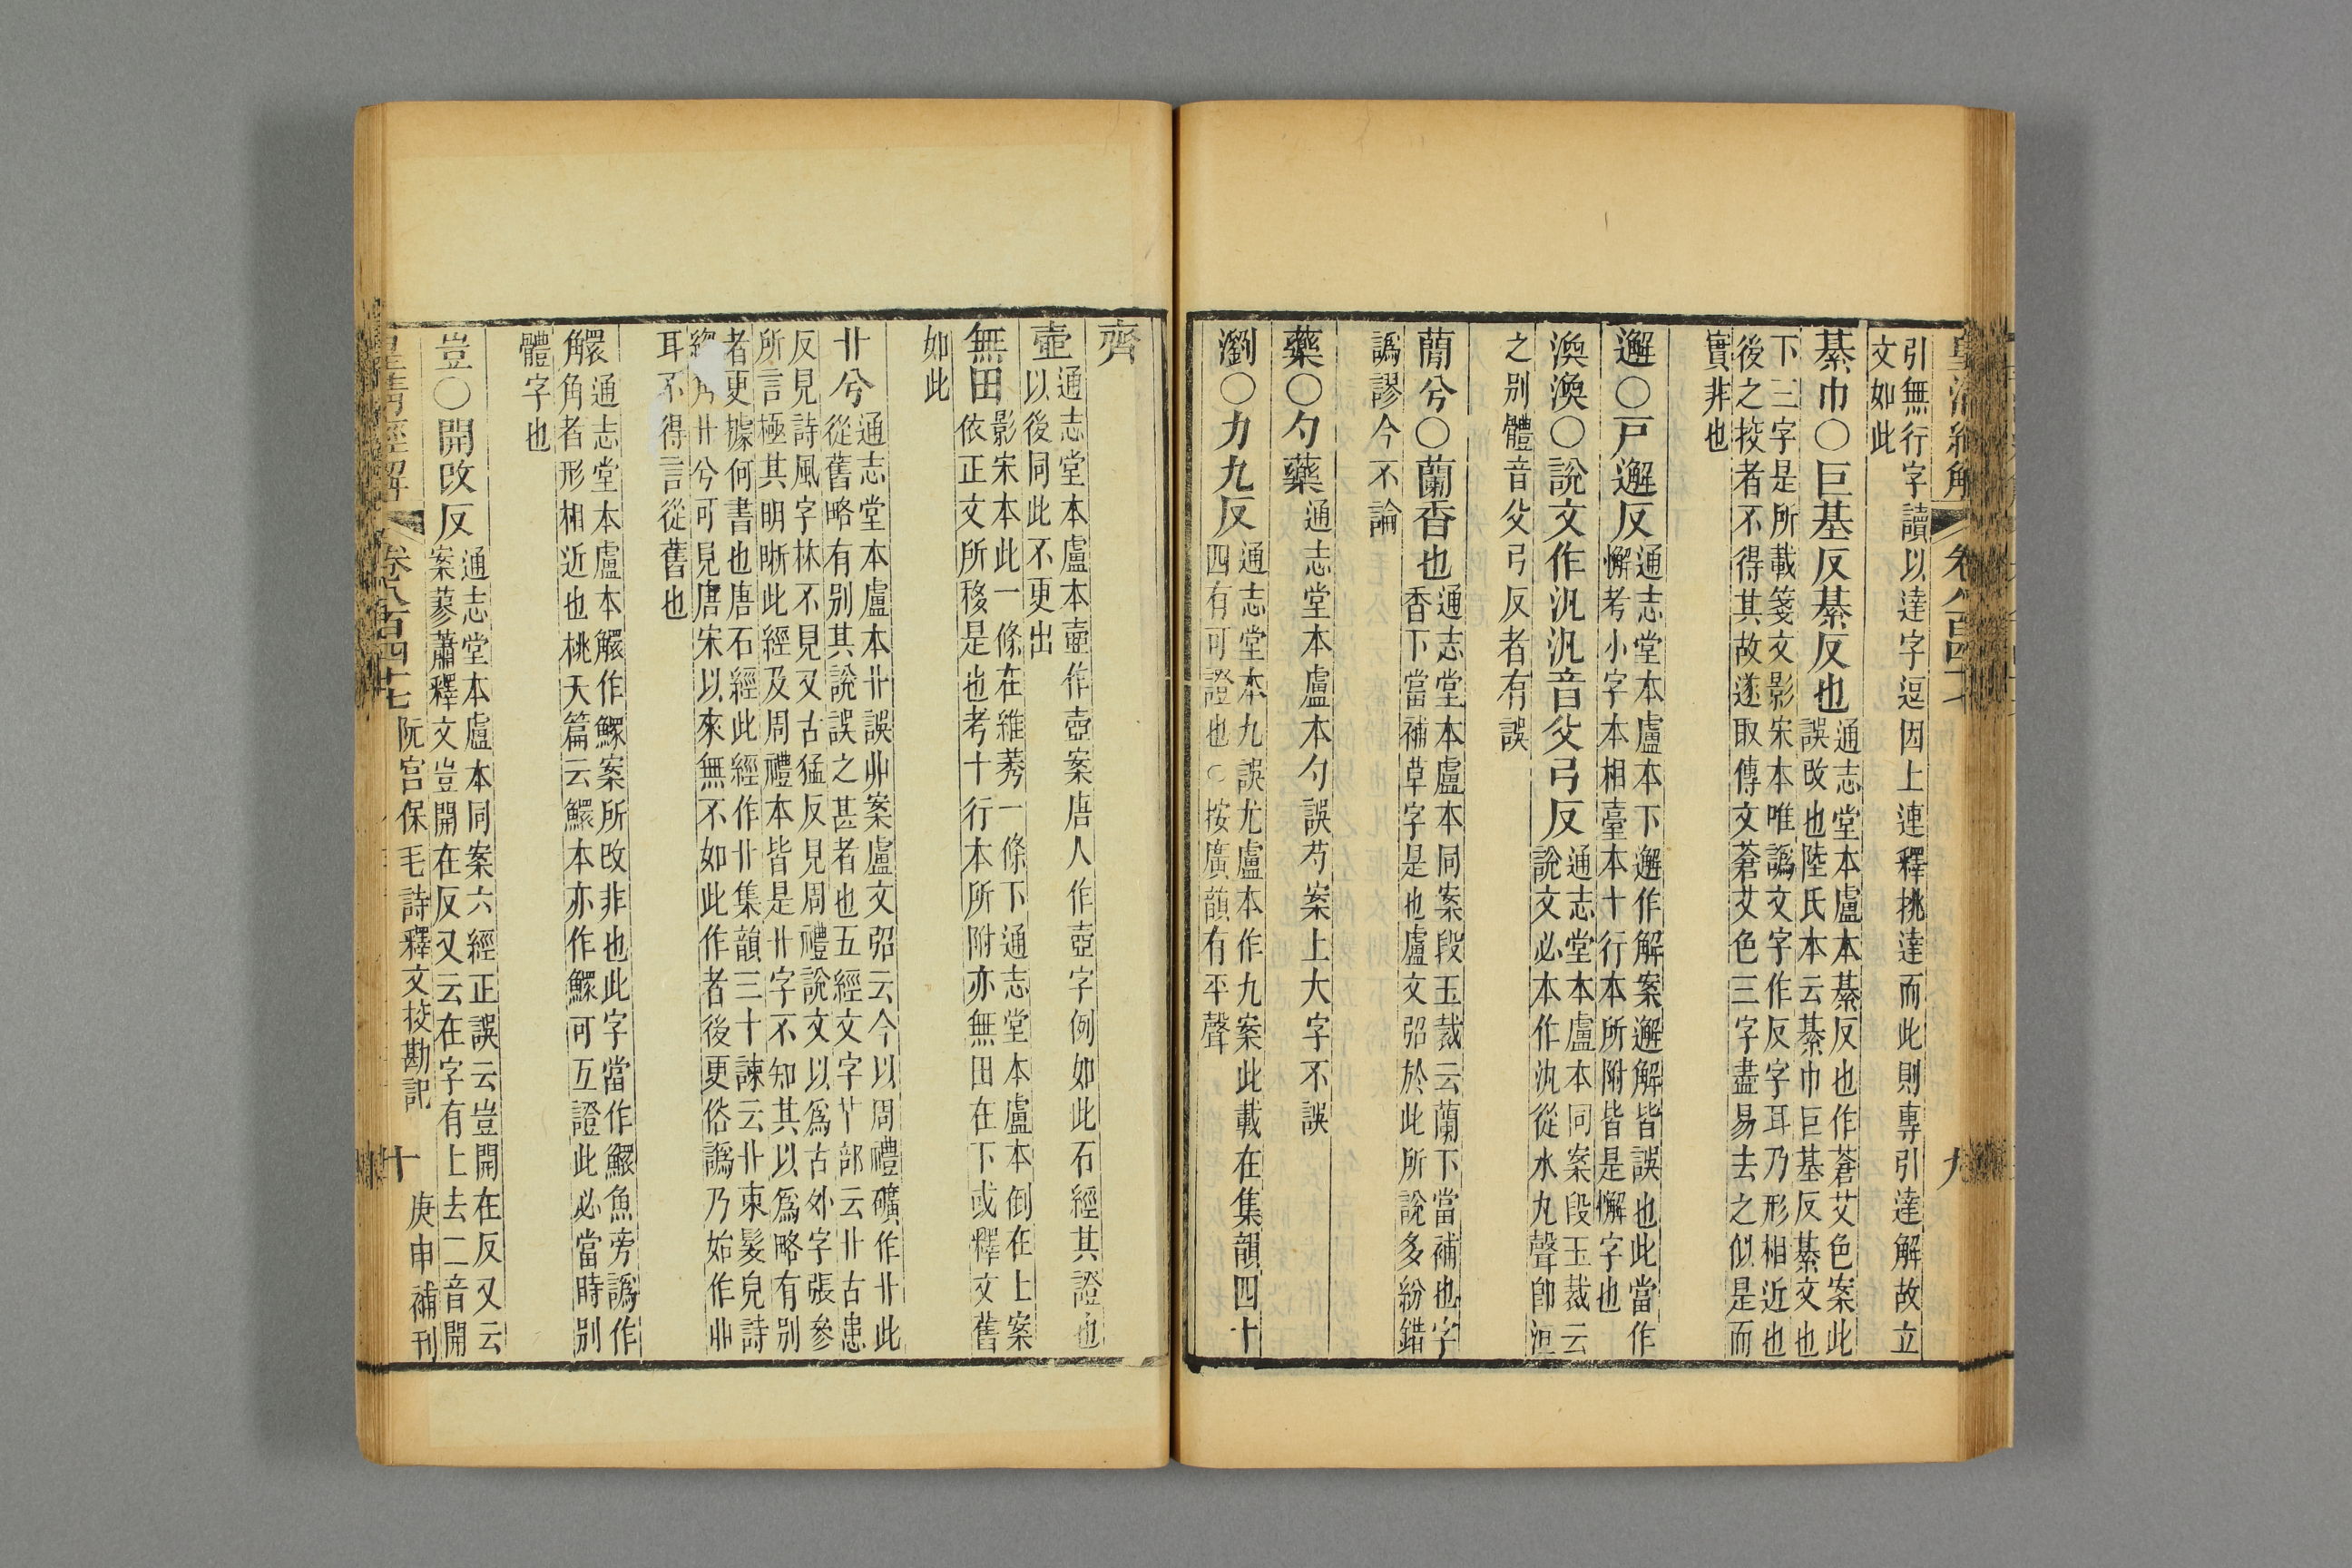 皇清經解 卷八百四十七 九
引無行字讀以達字逗因上連釋挑達而此則專引達解故立
文如此
綦巾〇巨基反綦反也
通志堂本盧本綦反也作蒼艾色案此
誤改也陸氏本云綦巾巨基反綦文也
下三字是所載箋文影宋本唯譌文字作反字耳乃形相近也
後之挍者不得其故遂取傳文蒼艾色三字盡易去之似是而
實非也
邂〇戸邂反
通志堂本盧本下邂作解案邂解皆誤也此當作
懈考小字本相臺本十行本所附皆是懈字也
渙渙〇說文作汎汎音父弓反
通志堂本盧本同案段玉裁云
說文必本作汍從水丸聲卽洹
之别體音父弓反者有誤
蕑兮〇蘭香也
通志堂本盧本同案段玉裁云蘭下當補也字
香下當補草字是也盧文弨於此所說多紛錯
譌謬今不論
藥〇勺藥
通志堂本盧本勺誤芍案上大字不誤
瀏〇力九反
通志堂本九誤尤盧本作九案此載在集韻四十
四有可證也〇按廣韻有平聲
齊
壷
通志堂本盧本壷作壺案唐人作壺字例如此石經其證也
以後同此不更出
無田
影宋本此一條在維莠一條下通志堂本盧本倒在上案
依正文所移是也考十行本所附亦無田在下或釋文舊
如此
卝兮
通志堂本盧本卝誤丱案盧文弨云今以周禮礦作卝此
從舊略有别其說誤之甚者也五經文字卝部云卝古患
反見詩風字林不見又古猛反見周禮說文以爲古外字張參
所言極其明晰此經及周禮本皆是卝字不知其以爲略有别
者更據何書也唐石經此經作卝集韻三十諫云卝束髮皃詩
緫角卝兮可見唐宋以來無不如此作者後更俗譌乃始作丱
耳不得言從舊也
鰥
通志堂本盧本鰥作鰥案所改非也此字當作鰥魚旁譌作
角者形相近也桃夭篇云鰥本亦作鰥可互證此必當時别
體字也
豈〇開改反
通志堂本盧本同案六經正誤云豈開在反又云
案蓼蕭釋文豈開在反又云在字有上去二音開
皇清經解 卷八百四十七 阮宫保毛詩釋文挍勘記 十 庚申補刊